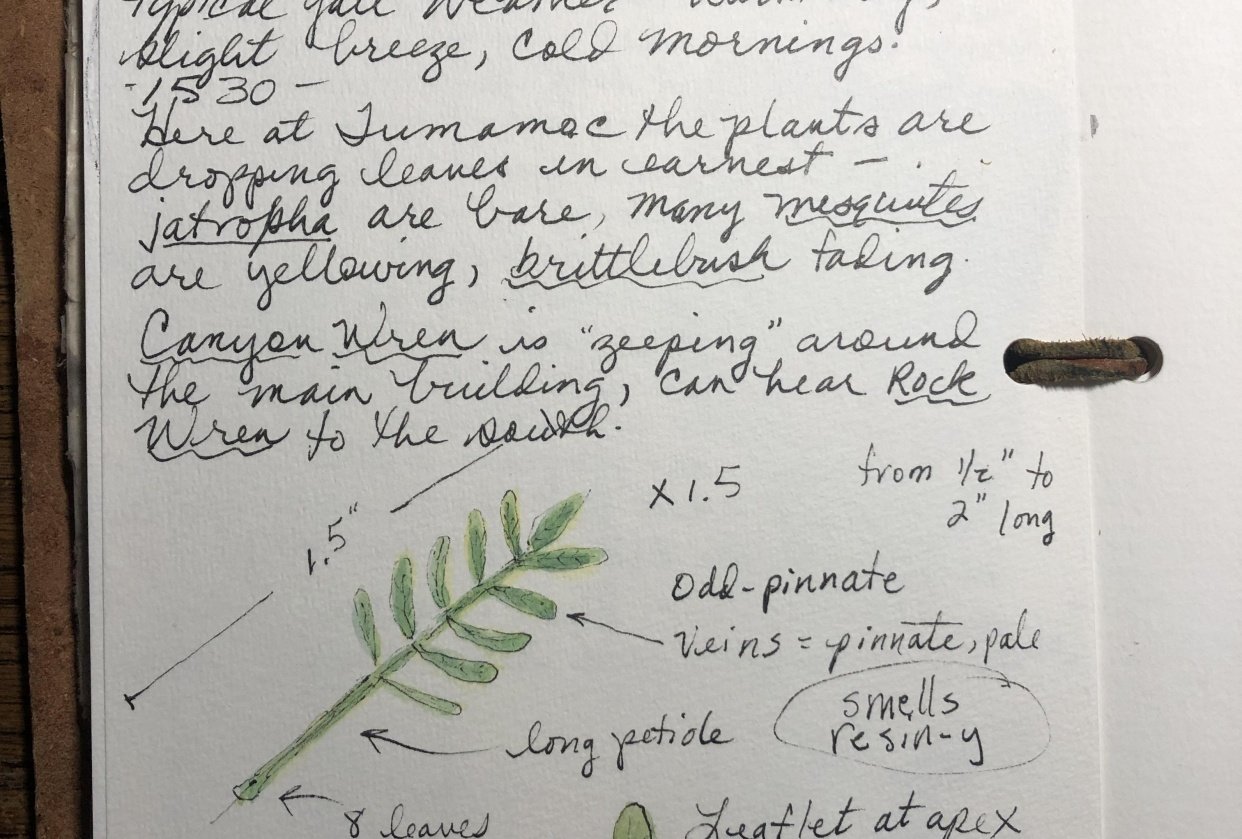 Typical fall weather
slight breeze, cold mornings.
-1530-
Here at Tumamoc the plants are
dropping leaves in earnest -
jatropha are bare, many mesquites
are yellowing, brittlebush fading.
Canyon Wren is "zeeping" around
the main building, can hear Rock
Wren to the south.
1.5"
x 1.5
from 1/2" to
2" long
Odd-pinnate
Veins = pinnate, pale
smells
resin-y
long petiole
8 leaves
Leaflet at apex